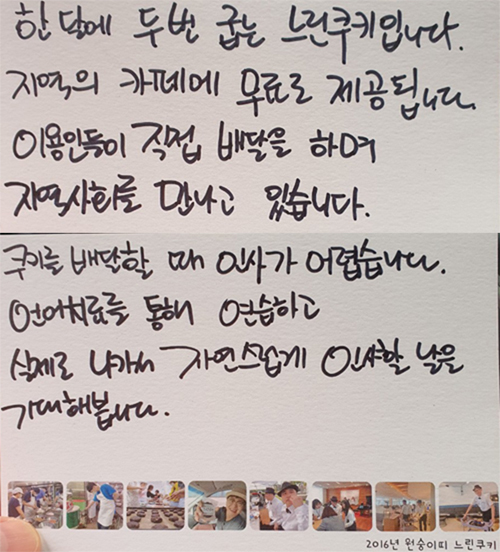 한 달에 두번 굽는 느린쿠키입니다.
지역의 카페에 무료로 제공됩니다.
이용인들이 직접 배달을 하며
지역사회를 만나고 있습니다.
쿠키를 배달할 때 인사가 어렵습니다.
언어치료를 통해 연습하고
실제로 나가서 자연스럽게 인사할 날을
기대해봅니다.
2016년 원숭이띠 느린쿠키